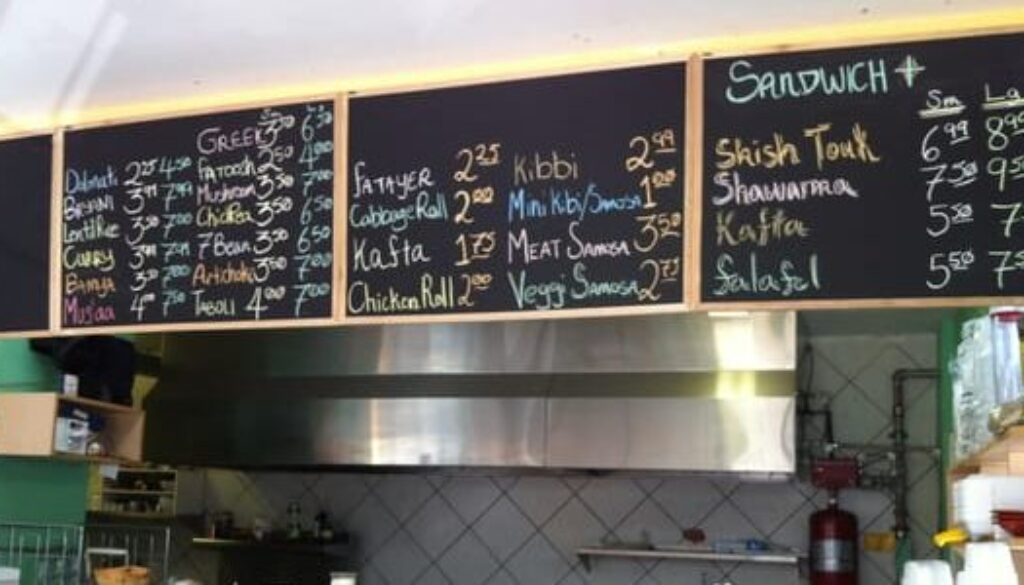 Sm
GREEK 3.50 6.50
Dolmati 2.25 4.50 FATOOCH 2.50 4.00
BRYANI 3.99 7.99 Mushroom 3.50 7.00
Lentil Rice 3.50 7.00 ChicPea 3.50 6.50
CURRY 3.99 7.99 7 Bean 3.50 6.50
Bamja 3.50 7.00 Artichoke 3.50 7.00
Musaa 4.00 7.50 TABOLI 4.00 7.00
FATAYER 2.25 Kibbi 2.99
Cabbage Roll 2.00 Mini Kibi/Samosa 1.00
Kafta 1.75 MEAT SAMOSA 3.50
Chicken Roll 2.00 Veggi SAMOSA 2.75
SANDWICH +
Sm Lg
Shish Touk 6.99 8.99
Shawarma 7.50 9.5
Kafta 5.50 7
falafel 5.50 7.5